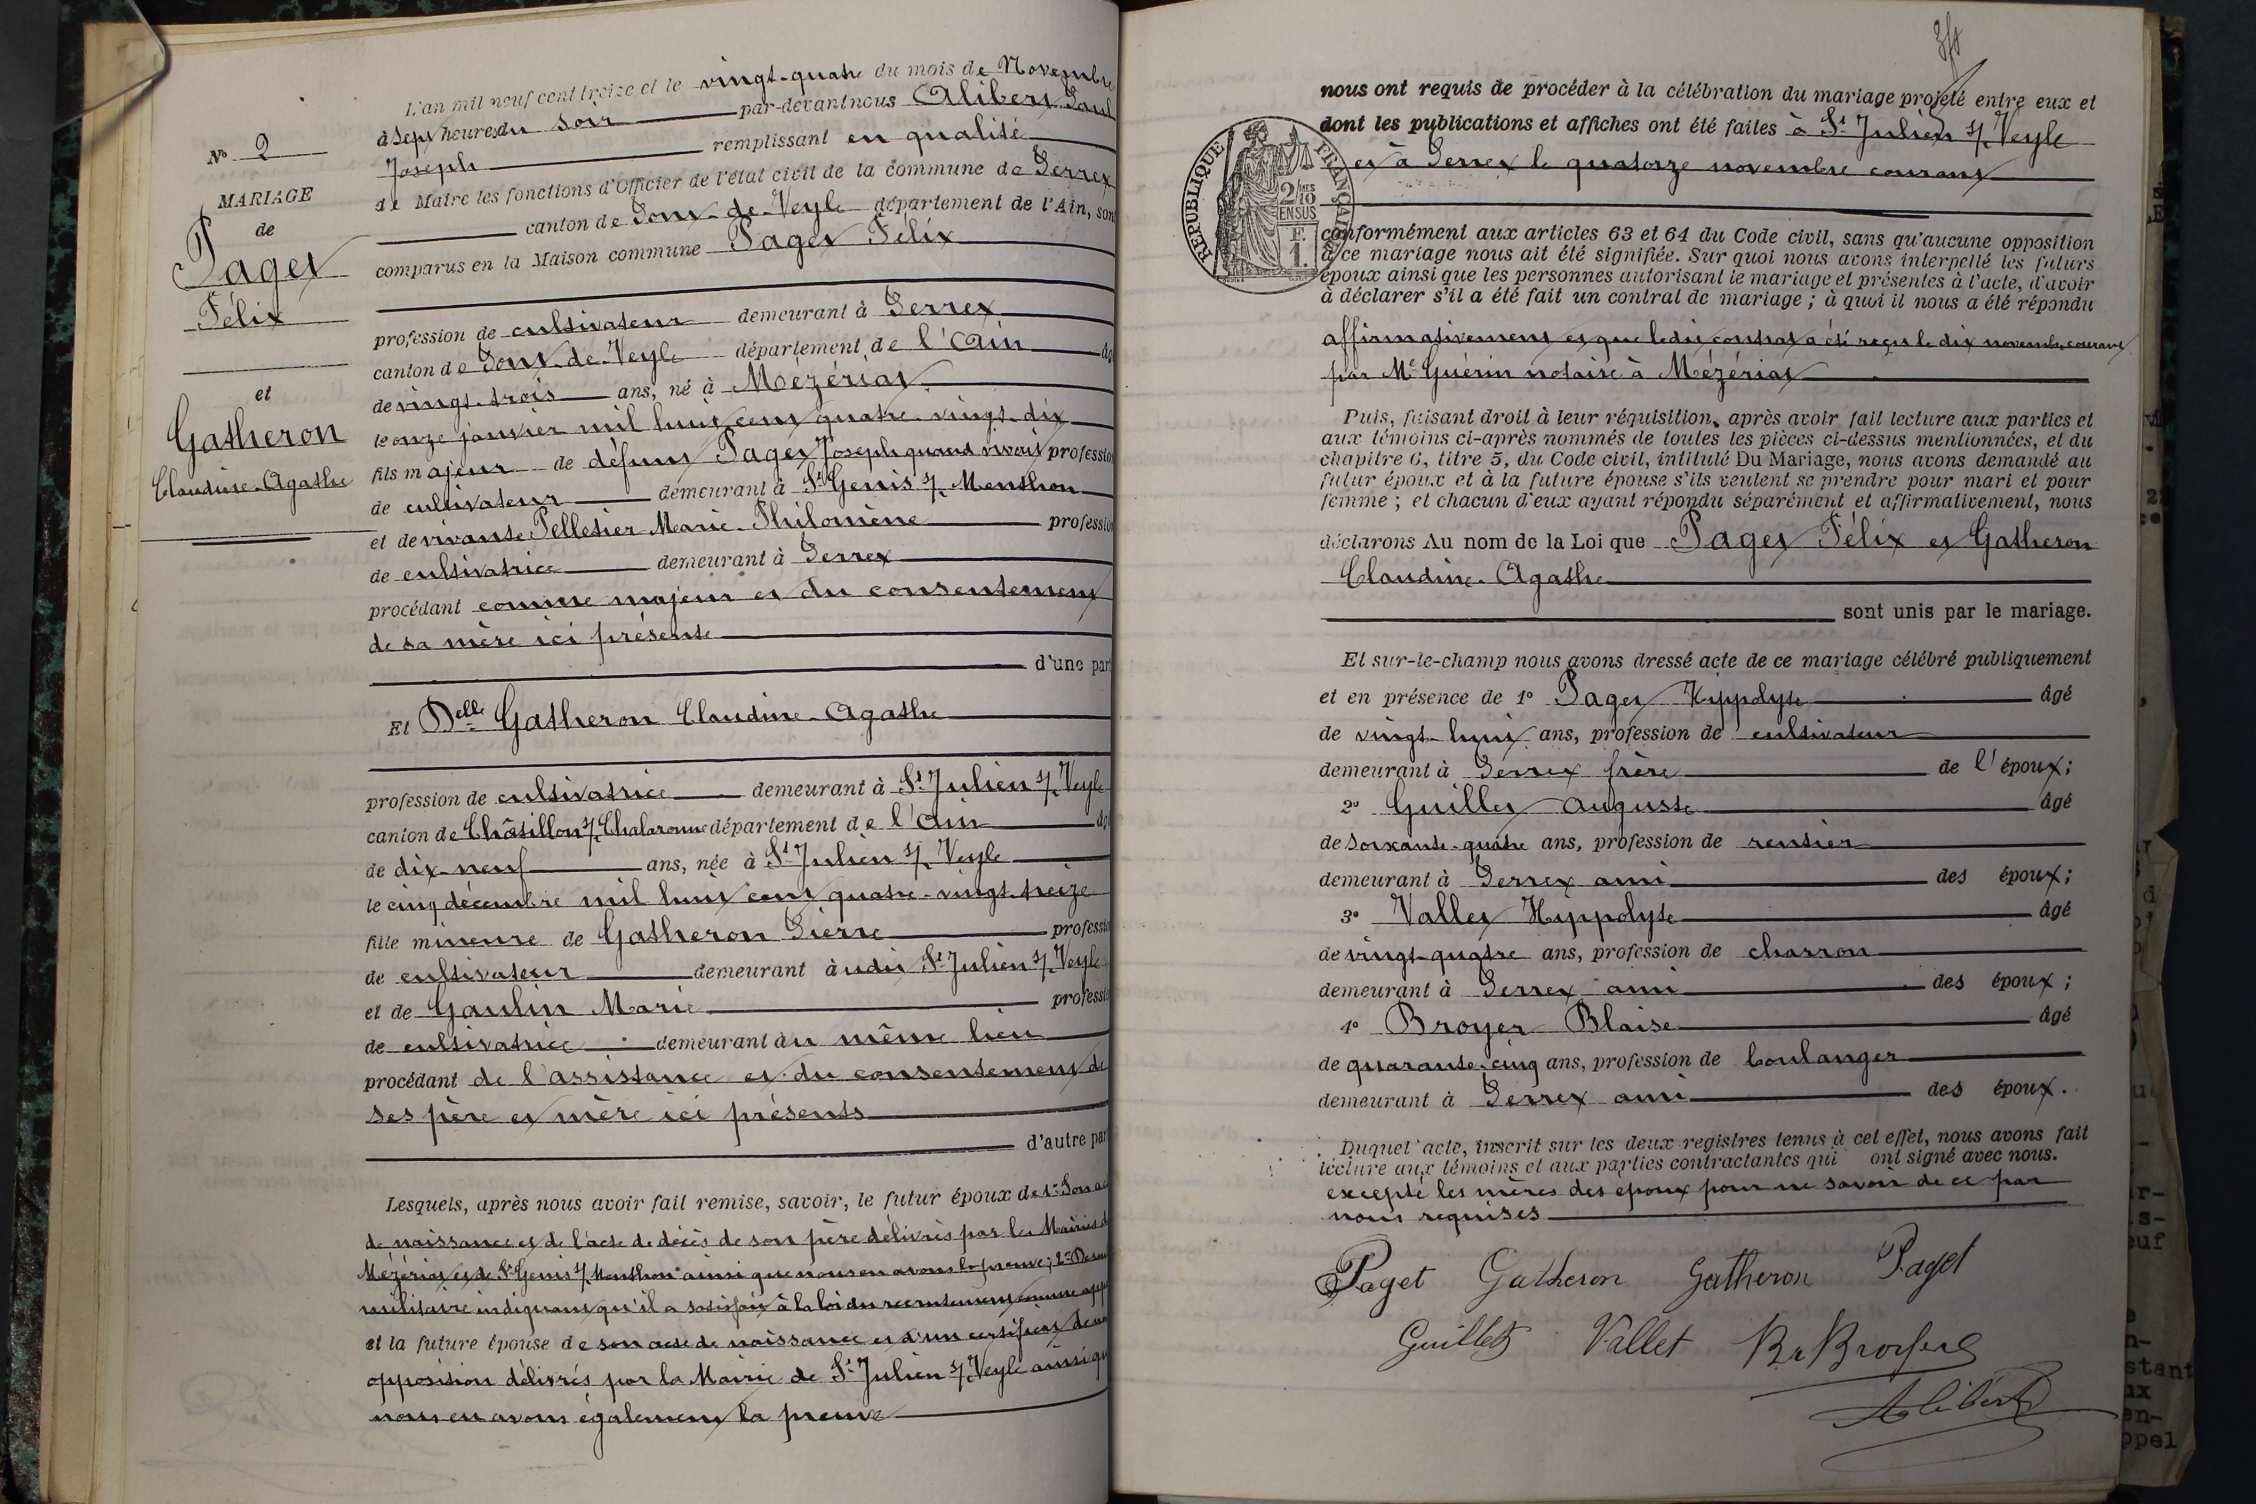 L'an mil neuf cent treize et le vingt-quatre du mois de Novembre
à sept heures du soir par-devant nous Alibert Paul
Joseph remplissant en qualité
de Maire les fonctions d'Officier de l'état civil de la commune de Perrex
canton de Pont-de-Veyle département de l'Ain, sont
comparus en la Maison commune Paget Félix
profession de cultivateur demeurant à Perrex
canton de Pont-de-Veyle département de l'Ain
de vingt-trois ans, né à Mézériat
le onze janvier mil huit cent quatre-vingt-dix
fils majeur de défunt Paget Joseph quand vivait profession
de cultivateur demeurant à St Genis s/ Menthon
et de vivante Pelletier Marie-Philomène profession
de cultivatrice demeurant à Perrex
procédant comme majeur et du consentement
de sa mère ici présente
d'une part
Et Delle Gatheron Claudine-Agathe
profession de cultivatrice demeurant à St Julien s/ Veyle
canton de Châtillon s/ Chalaronne département de l'Ain
de dix-neuf ans, née à St Julien s/ Veyle
le cinq décembre mil huit cent quatre-vingt-treize
fille mineure de Gatheron Pierre profession
de cultivateur demeurant àudit St Julien s/ Veyle
et de Gaulin Marie profession
de cultivatrice demeurant au même lieu
procédant de l'assistance et du consentement de
ses père et mère ici présents
d'autre part
Lesquels, après nous avoir fait remise, savoir, le futur époux de 1° Son ac
de naissance et de l'acte de décès de son père délivrés par les Mairies de
Mézériat et de St Genis s/ Menthon ainsi que nous en avons la preuve; 2°
militaire indiquant qu'il a satisfait à la loi du recrutement comme
et la future épouse de son acte de naissance et d'un certificat de non
opposition délivrés par la Mairie de St Julien s/ Veyle ainsi que
nous en avons également la preuve
N° 2
MARIAGE
de
Paget
Félix
et
Gatheron
Claudine-Agathe
nous ont requis de procéder à la célébration du mariage projeté entre eux et
dont les publications et affiches ont été faites à St Julien s/ Veyle
et à Perrex le quatorze novembre courant
RÉPUBLIQUE FRANÇAISE
2/10 MES
EN SUS
F.
1.
conformément aux articles 63 et 64 du Code civil, sans qu'aucune opposition
à ce mariage nous ait été signifiée. Sur quoi nous avons interpellé les futurs
époux ainsi que les personnes autorisant le mariage et présentes à l'acte, d'avoir
à déclarer s'il a été fait un contrat de mariage ; à quoi il nous a été répondu
affirmativement et que ledit contrat a été reçu le dix novembre courant
par Me Guérin notaire à Mézériat
Puis, faisant droit à leur réquisition, après avoir fait lecture aux parties et
aux témoins ci-après nommés de toutes les pièces ci-dessus mentionnées, et du
chapitre 6, titre 5, du Code civil, intitulé Du Mariage, nous avons demandé au
futur époux et à la future épouse s'ils veulent se prendre pour mari et pour
femme ; et chacun d'eux ayant répondu séparément et affirmativement, nous
déclarons Au nom de la Loi que Paget Félix et Gatheron
Claudine-Agathe
sont unis par le mariage.
Et sur-le-champ nous avons dressé acte de ce mariage célébré publiquement
et en présence de 1° Paget Hippolyte âgé
de vingt-huit ans, profession de cultivateur
demeurant à Perrex frère de l'époux;
2° Guillet Auguste âgé
de soixante-quatre ans, profession de rentier
demeurant à Perrex ami des époux;
3° Vallet Hippolyte âgé
de vingt-quatre ans, profession de charron
demeurant à Perrex ami des époux;
4° Broyer Blaise âgé
de quarante-cinq ans, profession de boulanger
demeurant à Perrex ami des époux.
Duquel acte, inscrit sur les deux registres tenus à cet effet, nous avons fait
lecture aux témoins et aux parties contractantes qui ont signé avec nous.
excepté les mères des époux pour ne savoir de ce par
nous requises
Paget Gatheron Gatheron Paget
Guillet Vallet Br Broyer
Alibert